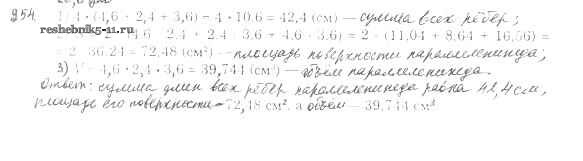 254. 1) 4 · (4,6 + 2,4 + 3,6) = 4 · 10,6 = 42,4 (см) — сумма всех рёбер;
reshebnik5-11.ru
2 · 2,4 + 2,4 · 3,6 + 4,6 · 3,6) = 2 · (11,04 + 8,64 + 16,56) =
= 2 · 36,24 = 72,48 (см²) — площадь поверхности параллелепипеда;
3) V = 4,6 · 2,4 · 3,6 = 39,744 (см³) — объём параллелепипеда.
Ответ: сумма длин всех рёбер параллелепипеда равна 42,4 см,
площадь его поверхности — 72,48 см², а объём — 39,744 см³